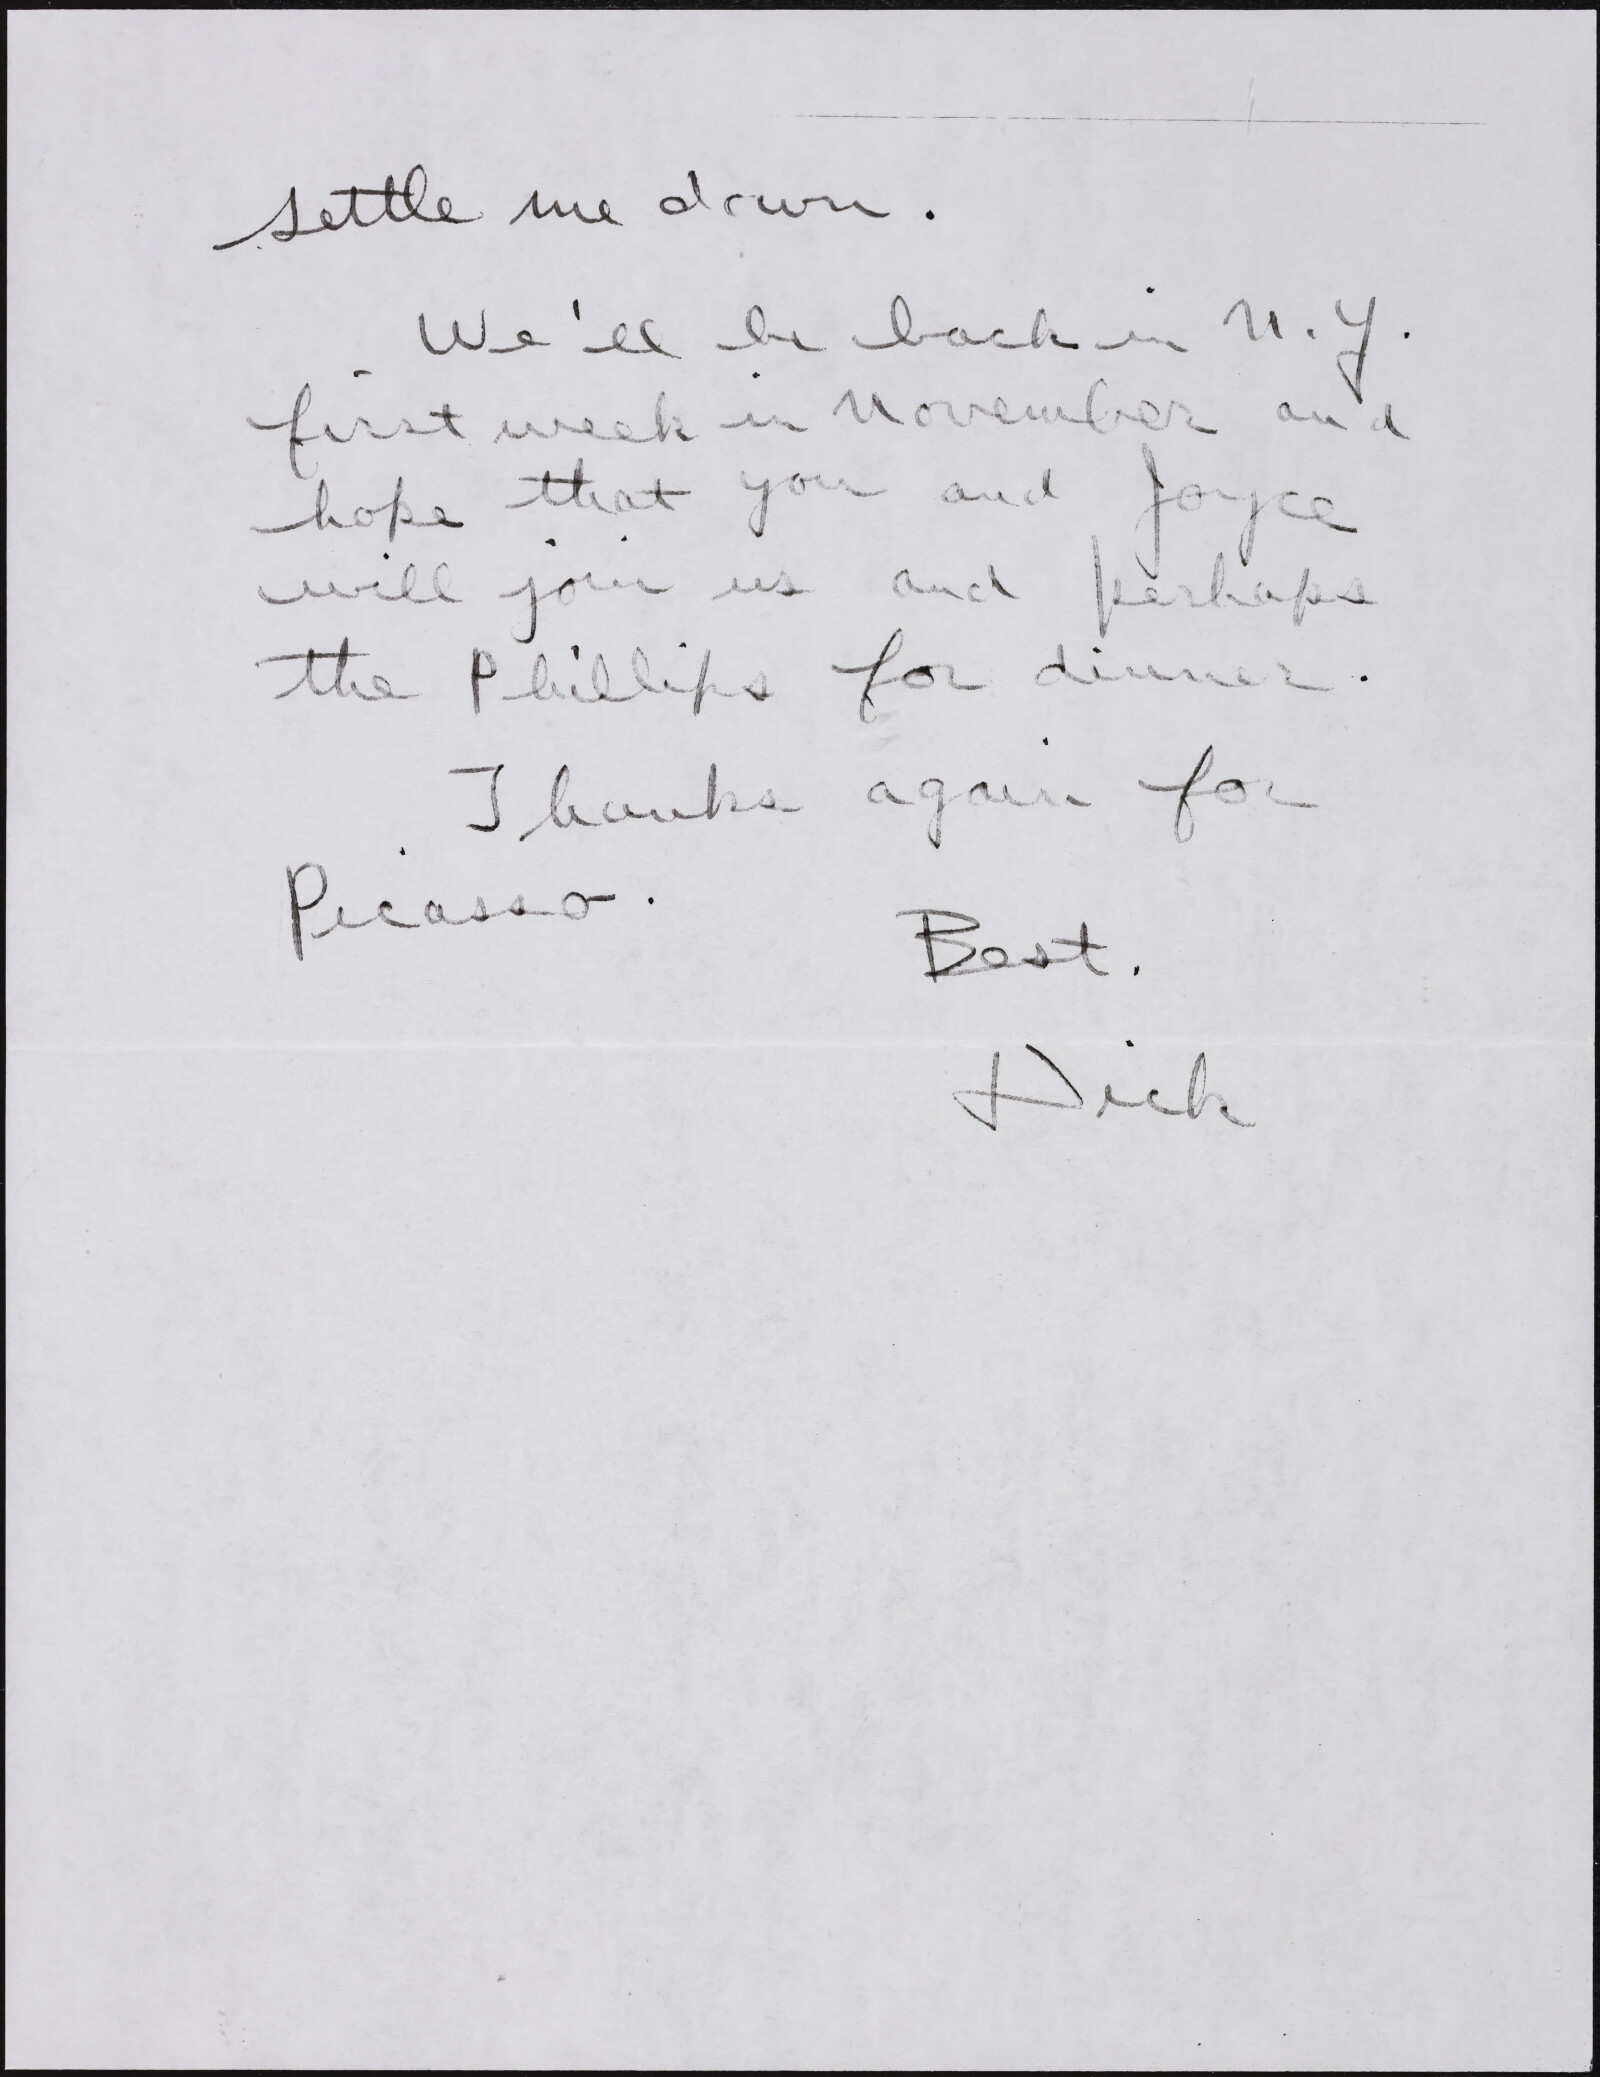 settle me down.
We'll be back in N.Y.
first week in November and
hope that you and Joyce
will join us and perhaps
the Phillips for dinner.
Thanks again for
Picasso.
Best.
Dick